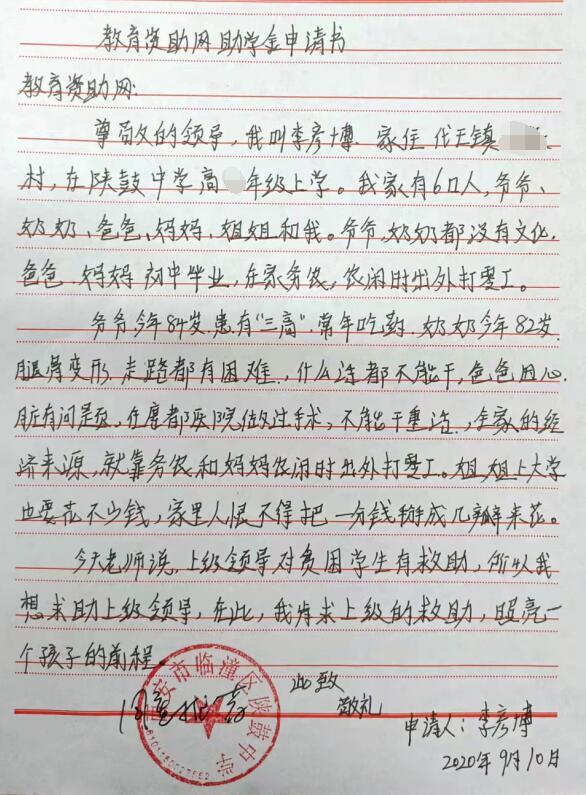 教育资助网助学金申请书
教育资助网:
尊敬的领导，我叫李彦博，家住代王镇
村，在陕鼓中学高 年级上学。我家有6口人，爷爷、
奶奶、爸爸、妈妈、姐姐和我。爷爷，奶奶都没有文化，
爸爸、妈妈初中毕业，在家务农，农闲时出外打零工。
爷爷今年84岁，患有“三高”，常年吃药，奶奶今年82岁，
腿骨变形，走路都有困难，什么活都不能干，爸爸因心
脏有问题，在唐都医院做过手术，不能干重活，全家的经
济来源，就靠务农和妈妈农闲时出外打零工。姐姐上大学
也要花不少钱，家里人恨不得把一分钱掰成几瓣来花。
今天老师说，上级领导对贫困学生有救助，所以我
想求助上级领导，在此，我肯求上级的救助，照亮一
个孩子的前程。
西安市临潼区陕鼓中学
此致
敬礼
申请人：李彦博
2020年9月10日